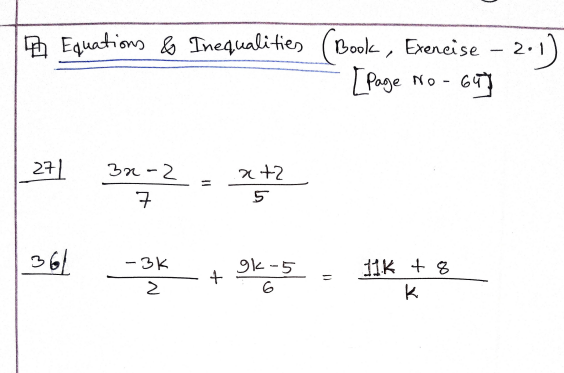 Equations & Inequalities (Book, Exercise - 2.1)
[Page No - 64]
27| (3x - 2)/7 = (x + 2)/5
36| (-3k)/2 + (9k - 5)/6 = (11k + 8)/k